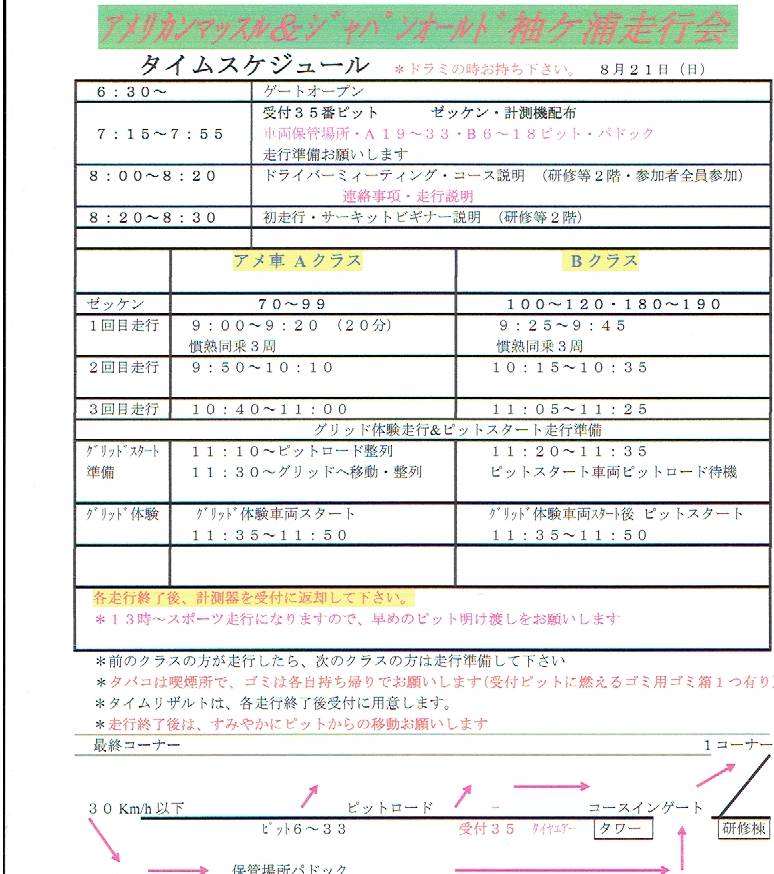 アメリカンマッスル&ジャパンオールド袖ケ浦走行会
タイムスケジュール ＊ドラミの時お持ち下さい。 8月21日（日）
6：30～ ゲートオープン
受付35番ピット ゼッケン・計測機配布
7：15～7：55 車両保管場所・A19～33・B6～18ピット・パドック
走行準備お願いします
8：00～8：20 ドライバーミィーティング・コース説明 （研修等2階・参加者全員参加）
連絡事項・走行説明
8：20～8：30 初走行・サーキットビギナー説明 （研修等2階）
アメ車 Aクラス Bクラス
ゼッケン 70～99 100～120・180～190
1回目走行 9：00～9：20 （20分） 9：25～9：45
慣熟同乗3周 慣熟同乗3周
2回目走行 9：50～10：10 10：15～10：35
3回目走行 10：40～11：00 11：05～11：25
グリッド体験走行&ピットスタート走行準備
グリッドスタート 11：10～ピットロード整列 11：20～11：35
準備 11：30～グリッドへ移動・整列 ピットスタート車両ピットロード待機
グリッド体験 グリッド体験車両スタート グリッド体験車両スタート後 ピットスタート
11：35～11：50 11：35～11：50
各走行終了後、計測器を受付に返却して下さい。
＊13時～スポーツ走行になりますので、早めのピット明け渡しをお願いします
＊前のクラスの方が走行したら、次のクラスの方は走行準備して下さい
＊タバコは喫煙所で、ゴミは各自持ち帰りでお願いします(受付ピットに燃えるゴミ用ゴミ箱1つ有り)
＊タイムリザルトは、各走行終了後受付に用意します。
＊走行終了後は、すみやかにピットからの移動お願いします
最終コーナー 1コーナー
30Km/h以下 ピットロード － コースインゲート
ピット6～33 受付35 タイヤエアー タワー 研修棟
保管場所パドック